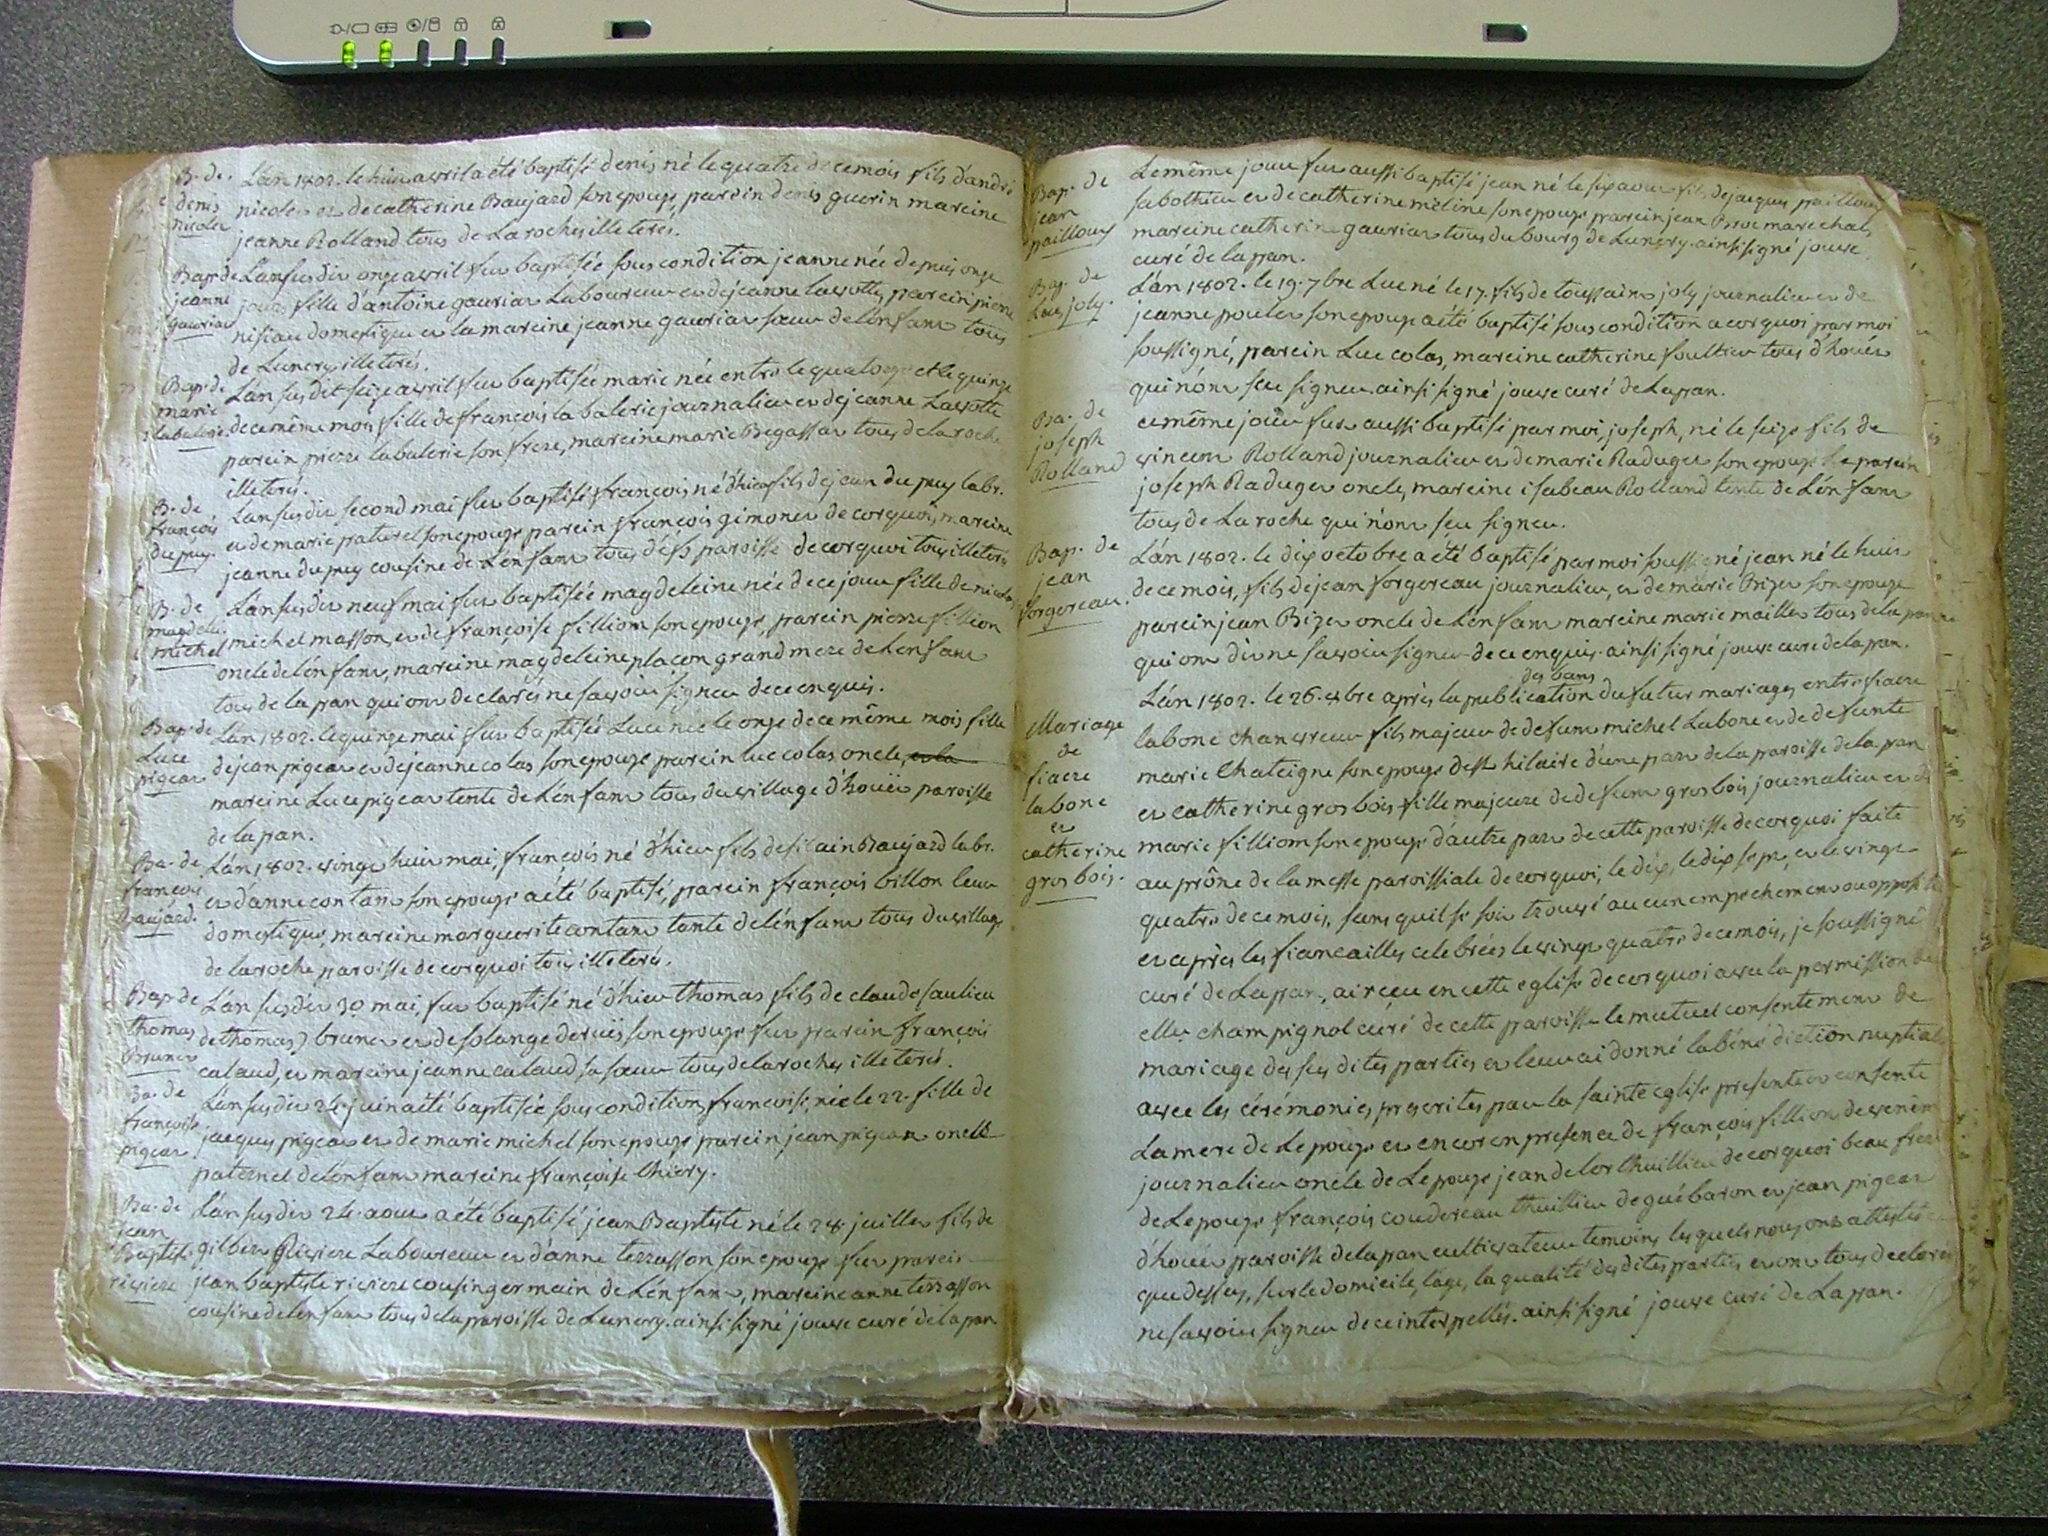 B. de
denis
nicolet
L'an 1802. le huit avril a été baptisé denis né le quatre de ce mois fils d'andré
nicolet et de catherine Baujard son epouse, parein denis guerin mareine
jeanne Rolland tous de La roche illeterés.
Bap. de
jeanne
gauriat
L'an susdit onze avril fut baptisée sous condition jeanne née depuis onze
jours fille d'antoine gauriat Laboureur et de jeanne lavotte, parein pierre
domestique et la mareine jeanne gauriat sœur de l'enfant tous
de Lunery illeterés.
Bap. de
marie
labalerie
L'an susdit seize avril fut baptisée marie née entre le quatorze et le quinze
de ce même mois fille de françois la balerie journalier et de jeanne Lavotte
parein pierre labalerie son frere, mareine marie Begassat tous de la roche
illeterés.
B. de
françois
du puy.
L'an susdit second mai fut baptisé françois né d'hier fils de jean du puy labr.
et de marie paturel son epouse parein françois gimonet de corquoi, mareine
jeanne du puy cousine de L'enfant tous paroisse de corquoi tous illeterés
B. de
michel
L'an susdit neuf mai fut baptisée magdeleine née de ce jour fille de nicolas
michel masson, et de françoise filliom son epouse, parein pierre fillion
oncle de l'énfant, mareine magdeleine plaçon grand mere de L'enfant
tous de la pan qui ont declarés ne savoir signer de ce enquis.
Bap. de
Luce
pigeat
L'an 1802. le quinze mai fut baptisée Luce née le onze de ce même mois fille
de jean pigeat et de jeanne colas son epouse parein luc colas oncle,
mareine Luce pigeat tente de L'énfant tous du village d'houët paroisse
de la pan.
Ba. de
françois
Baujard.
L'an 1802. vingt huit mai, françois né d'hier fils de silain Baujard labr.
et d'anne contant son epouse a été baptisé, parein françois billon leur
domestique, mareine marguerite contant tante de l'énfant tous du village
de la roche paroisse de corquoi tous illeterés.
Bap. de
thomas
Brunet
L'an susdit 30 mai, fut baptisé né d'hier thomas fils de claude saulieu
de thomas) brunet et de solange son epouse fut parein françois
calaud, et mareine jeanne calaud, sa sœur tous de la roches illeterés.
Ba. de
françoise
pigeat
L'an susdit 24. juin a été baptisée sous condition, françoise, née le 22. fille de
jacques pigeat et de marie michel son epouse parein jean pigeat oncle
paternel de l'enfant mareine françoise thiery.
Ba. de
jean
Baptiste
riviere
L'an susdit 24. aout a été baptisé jean Baptiste né le 28. juillet fils de
gilbert Riviere Laboureur et d'anne terrasson son epouse fut parein
jean baptiste riviere cousin germain de L'énfant, mareine anne terrasson
cousine de l'enfant tous de la paroisse de Lunery. ainsi signé jouve curé de la pan
Bap. de
jean
pailloux
Le même jour fut aussi baptisé jean né le six aout fils de jacques pailloux
sabothier et de catherine meline son epouse parein jean marechal,
mareine catherine gauriat tous du bourg de Lunery. ainsi signé jouve
curé de la pan.
Bap. de
Luc joly.
L'an 1802. le 19. 7bre Luc né le 17. fils de toussaint joly journalier et de
jeanne poulet son epouse a été baptisé sous condition a corquoi par moi
soussigné, parein Luc colas, mareine catherine soultier tous d'houët
qui n'ont seu signer. ainsi signé jouve curé de Lapan.
Ba. de
joseph
Rolland
ce même jour fut aussi baptisé par moi, joseph, né le seize fils de
vincent Rolland journalier et de marie Raduget son epouse Le parein
joseph Raduget oncle, mareine isabeau Rolland tente de L'énfant
tous de La roche qui n'ont seu signer.
Bap. de
jean
forgereau.
L'an 1802. le dix octobre a été baptisé par moi soussigné jean né le huit
de ce mois, fils de jean forgereau journalier, et de marie Bizet son epouse
parein jean Bizet oncle de L'énfant mareine marie maillet tous de la panne
qui ont dit ne savoir signer de ce enquis. ainsi signé jouve curé de la pan.
Mariage
de
fiacre
labone
et
catherine
gros bois.
des bans
L'an 1802. le 26. 8bre après la publication du futur mariage, entre fiacre
labone chanvreur fils majeur de defunt michel Labone et de defunte
marie Chateigne son epouse de st hilaire d'une part de la paroisse de la pan
et catherine gros bois fille majeure de defunt gros bois journalier et de
marie filliom son epouse d'autre part de cette paroisse de corquoi faite
au prône de la messe paroissiale de corquoi, le dix, le dix sept, et le vingt
quatre de ce mois, sans qu'il se soit trouvé aucun empechement ou opposition
et après les fiancailles celebrées le vingt quatre de ce mois, je soussigné
curé de Lapan, ai receu en cette eglise de corquoi avec la permission de
champignol curé de cette paroisse le mutuel consentement de
mariage des susdites parties et leur ai donné la bénédiction nuptiale
avec les cérémonies prescrites par la sainte eglise presente et consente
La mere de L'epouse et encore en presence de françois fillion
journalier oncle de L'epouse jean delor thuillier de corquoi beau frere
de L'epouse françois coudereau thuillier de guébaron et jean pigeat
d'houët paroisse de la pan cultivateur temoins lesquels nous ont attesté
que dessus, sur le domicile, l'age, la qualité des dites parties et ont tous declarés
ne savoir signer de ce interpellés. ainsi signé jouve curé de Lapan.